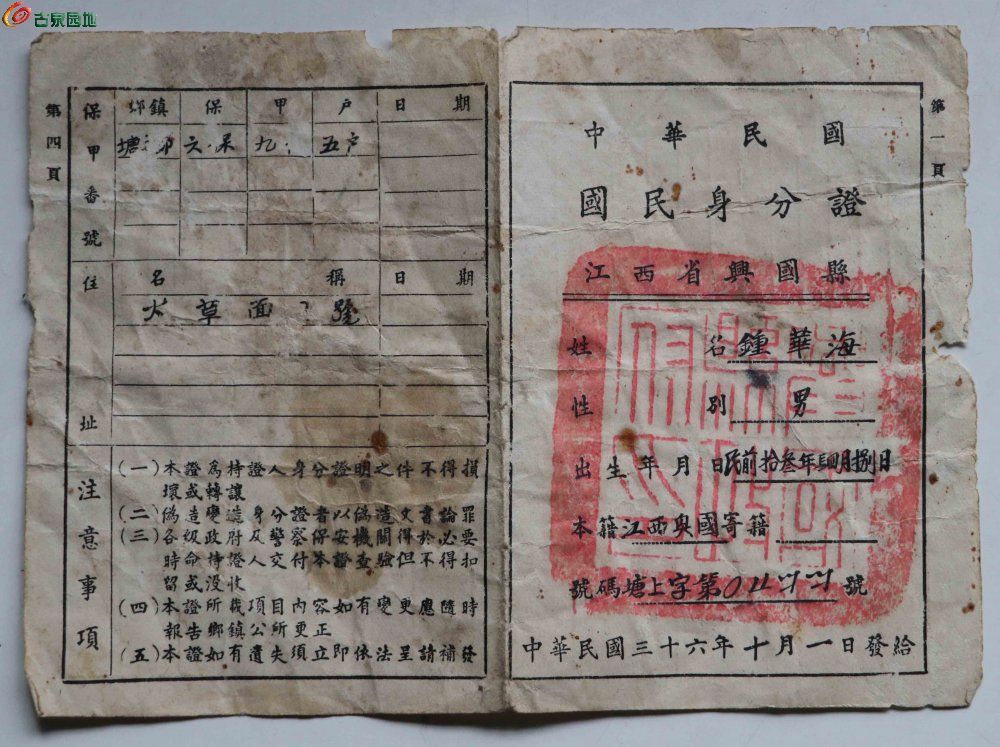 古泉园地
第一頁
中華民國
國民身分證
江西省興國縣
姓名 鍾華海
性別 男
出生年月日 民前拾叁年四月捌日
本籍 江西興國 寄籍
號碼 塘上字第 號
中華民國三十六年十月一日發給
第四頁
保甲番號
鄉鎮 保 甲 户 日期
塘 六保 九 五户
住址
名稱 日期
大草面 號
注意事項
(一)本證為持證人身分證明之件不得損
壞或轉讓
(二)偽造變造身分證者以偽造文書論罪
(三)各級政府及警察保安機關於必要
時命持證人交付本證查驗但不得扣
留或沒收
(四)本證所載項目內容如有變更應隨時
報告鄉鎮公所更正
(五)本證如有遺失須立即依法呈請補發